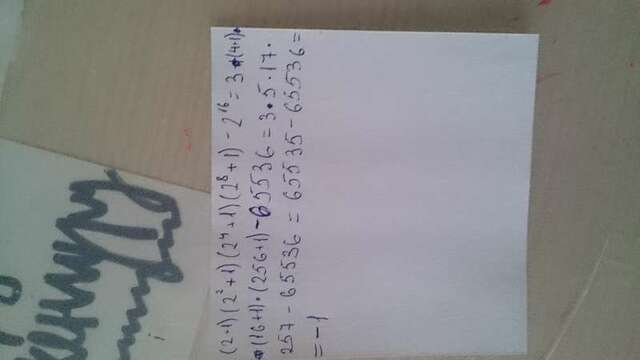 (2·1)(2²+1)(2⁴+1)(2⁸+1) - 2¹⁶ = 3·(4+1)·
·(16+1)·(256+1) - 65536 = 3·5·17·
257 - 65536 = 65535 - 65536 =
= -1